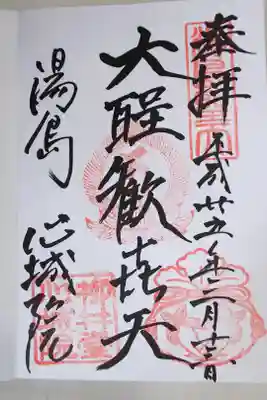 奉拝 平成廿五年二月
大聖歡喜天
湯島 心城院